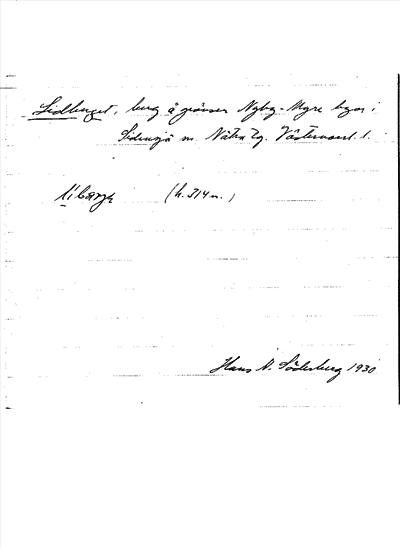 Lidberget, berg å gränsen Nyby-Myre byar i
Sidensjö sn. Nätra tg. Västernorrl. l.
(h. 314 m.)
Hans N. Söderberg 1930